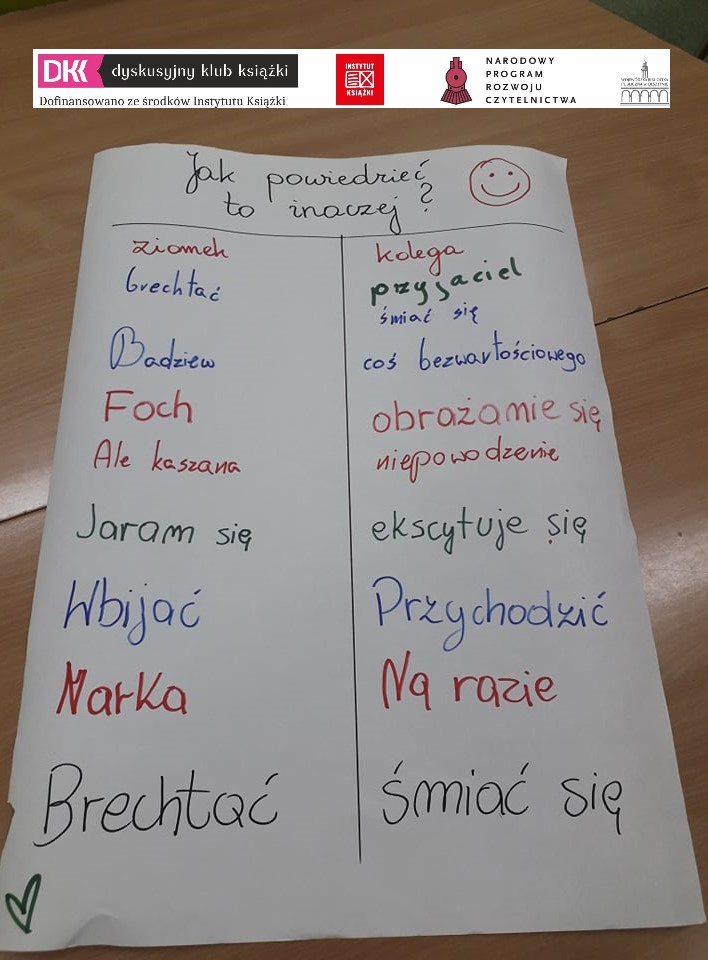 DKK dyskusyjny klub książki
Dofinansowano ze środków Instytutu Książki
INSTYTUT
KSIĄŻKI
NARODOWY
PROGRAM
ROZWOJU
CZYTELNICTWA
WOJEWÓDZKA BIBLIOTEKA
PUBLICZNA W OLSZTYNIE
Jak powiedzieć
to inaczej?
ziomek kolega
przyjaciel
brechtać śmiać się
Badziew coś bezwartościowego
Foch obrażamie się
Ale kaszana niepowodzenie
Jaram się ekscytuje się
Wbijać Przychodzić
Narka Na razie
Brechtać śmiać się